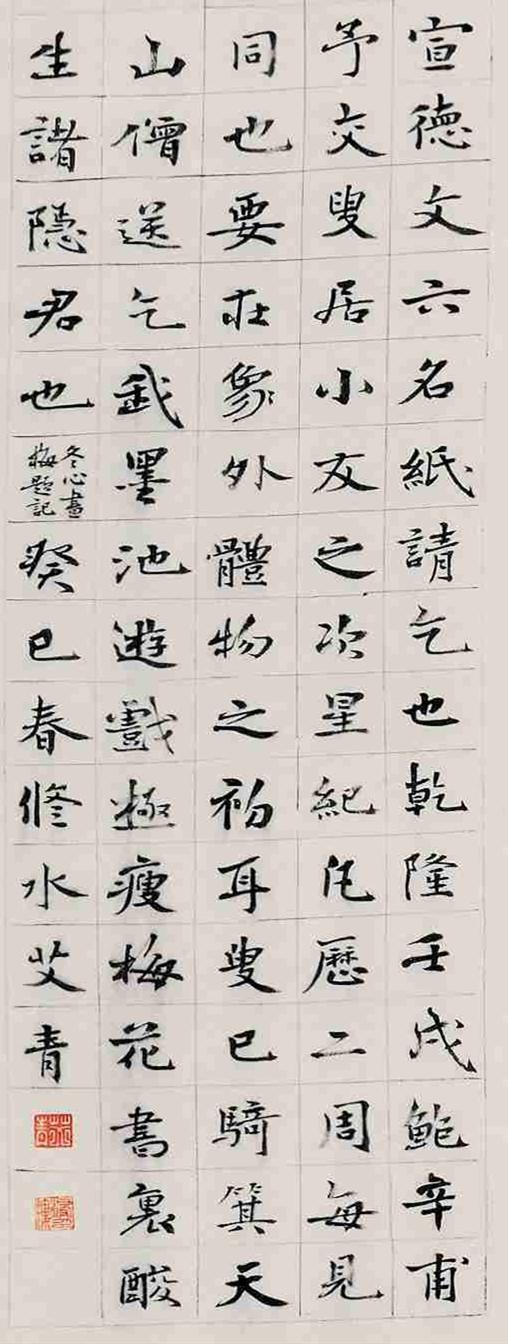 宣德文六名紙請乞也乾隆壬戌鮑辛甫
予交叟居小友之次星紀凡歷二周每見
同也要在象外體物之初耳叟已騎箕天
山僧送乞我墨池遊戲極瘦梅花書裏酸
生諸隱君也
冬心畫
梅題記
癸巳春修水艾青